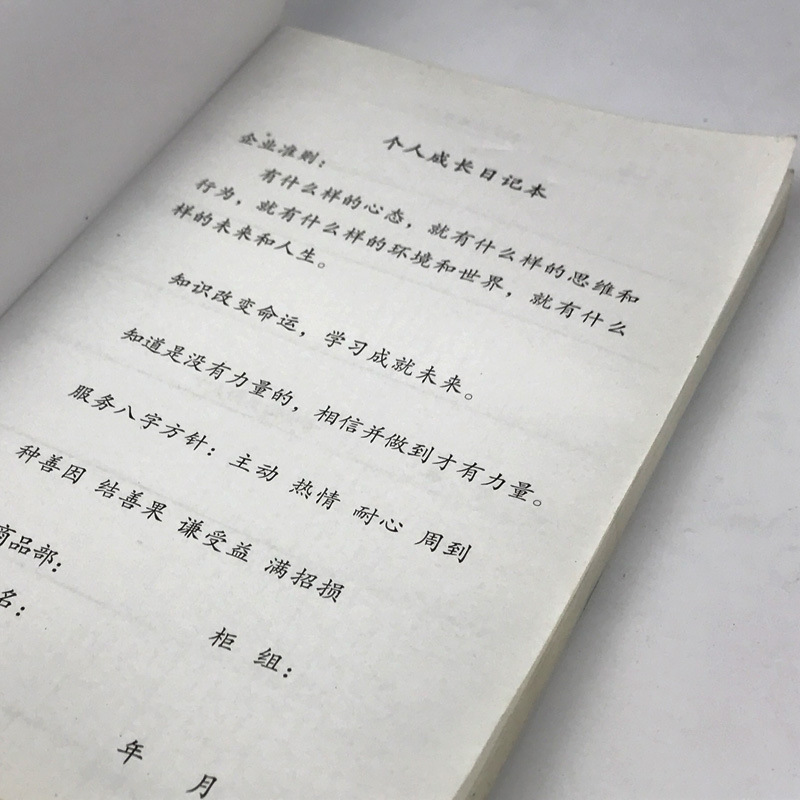 个人成长日记本
企业准则：
有什么样的心态，就有什么样的思维和
行为，就有什么样的环境和世界，就有什么
样的未来和人生。
知识改变命运，学习成就未来。
知道是没有力量的，相信并做到才有力量。
服务八字方针：主动 热情 耐心 周到
种善因 结善果 谦受益 满招损
商品部：
名：
柜 组：
年 月